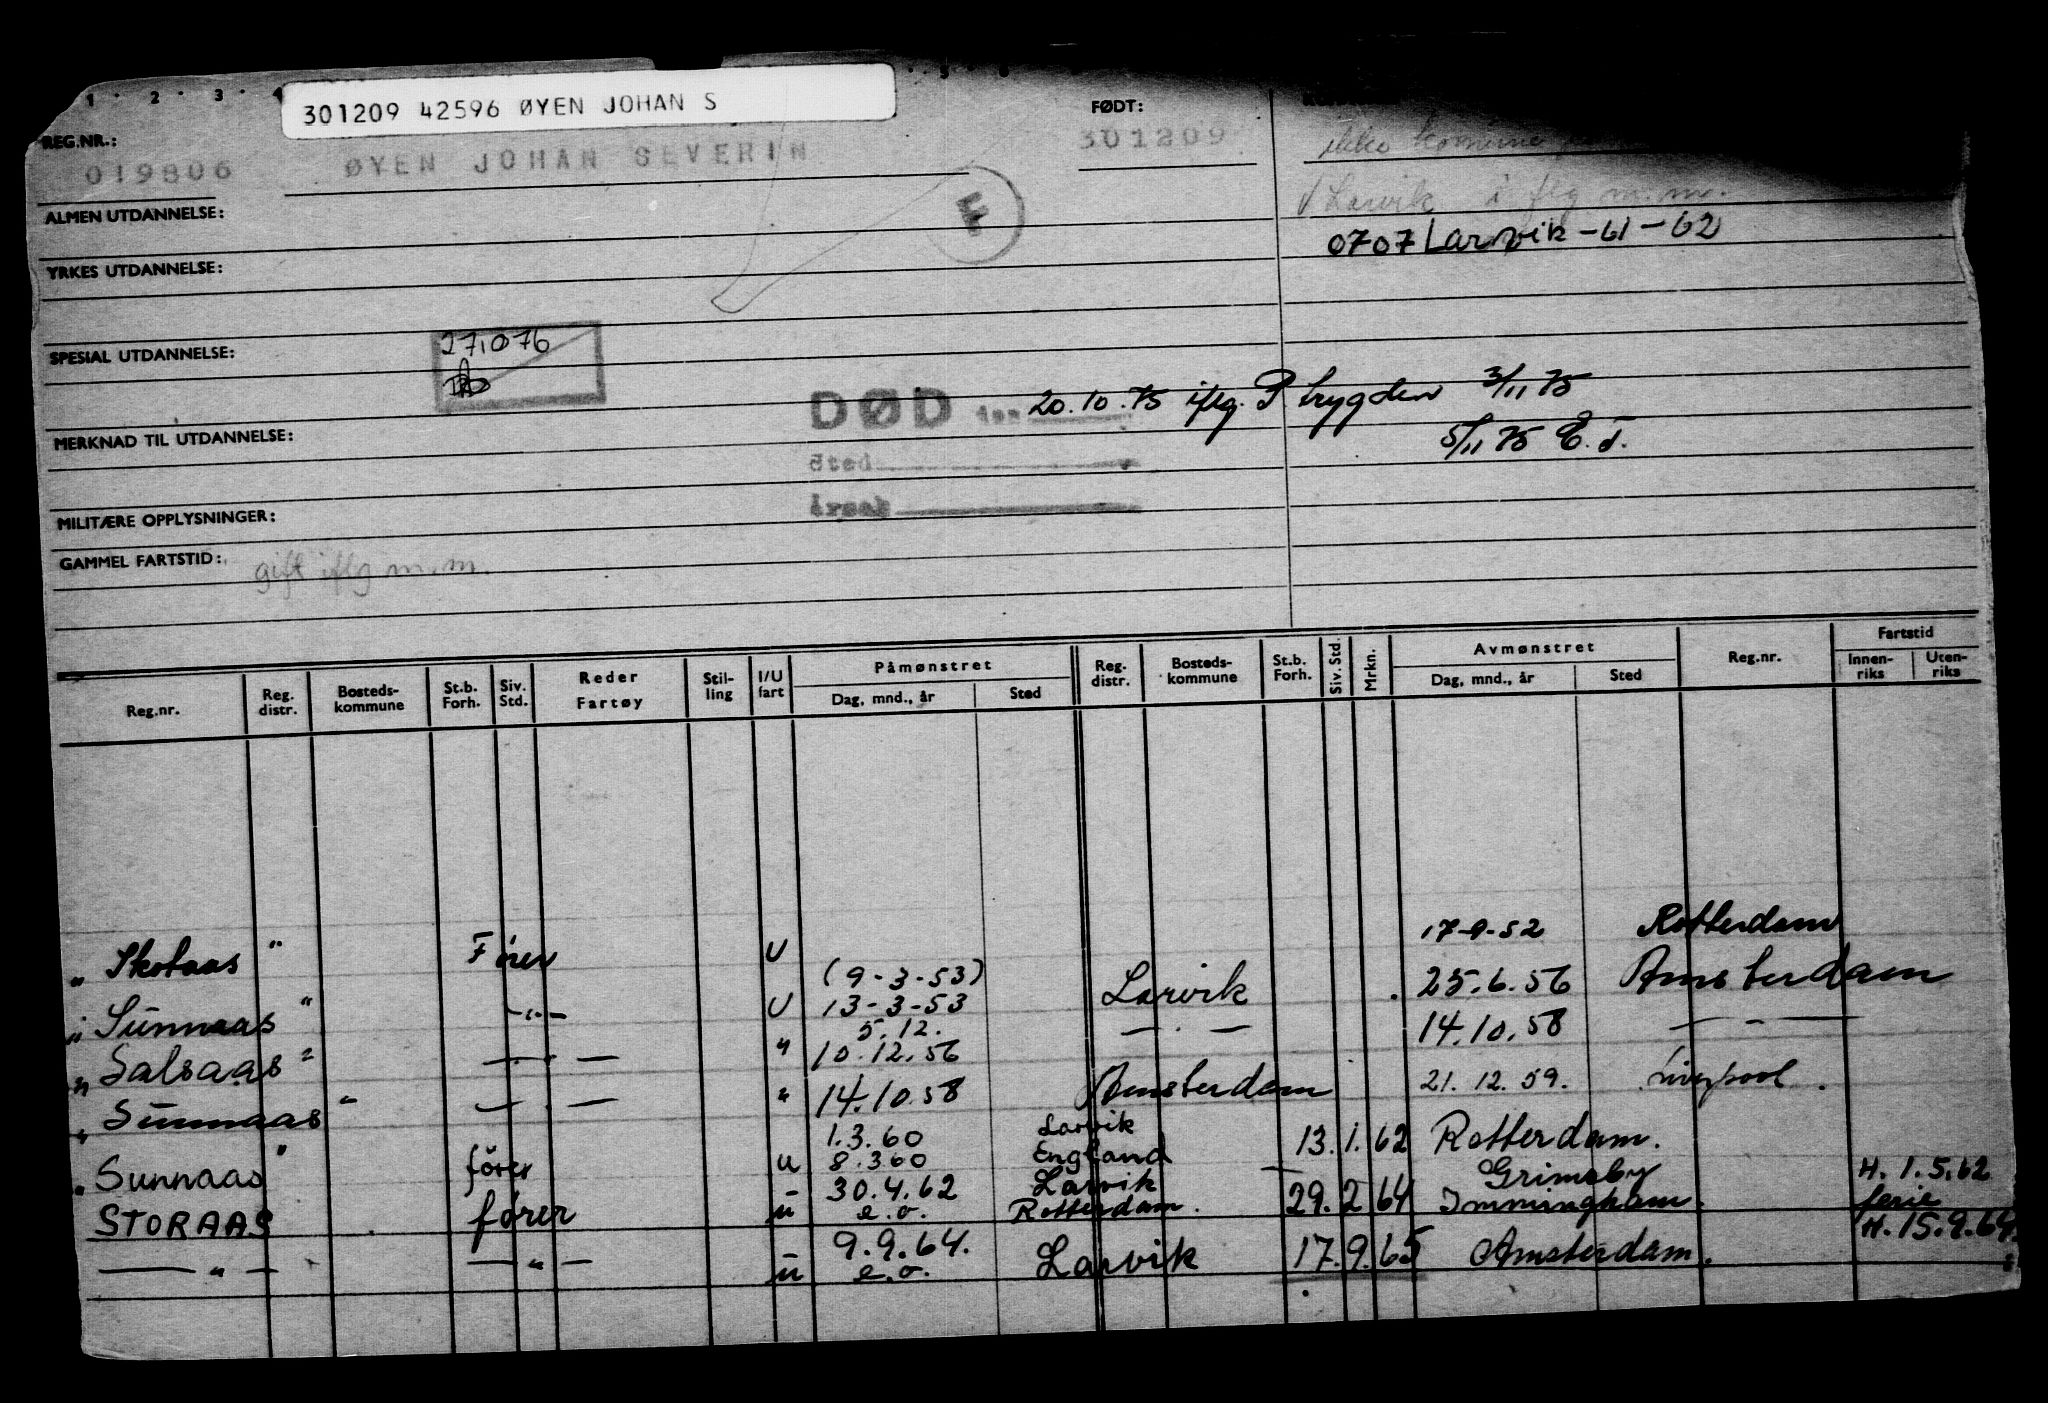 1 · 2 · 3 · 4
5 · 6
301209 42596 ØYEN JOHAN S
FØDT:
REG.NR.:
019806 ØYEN JOHAN SEVERIN 301209
ikke komune
Larvik i flg m.m.
0707 Larvik -61-62
ALMEN UTDANNELSE:
YRKES UTDANNELSE:
SPESIAL UTDANNELSE:
271076
DØD den 20.10.75 iflg. P trygden 3/11 75
5/11 75 E.T.
sted
årsak
MERKNAD TIL UTDANNELSE:
MILITÆRE OPPLYSNINGER:
GAMMEL FARTSTID: gift iflg m.m.
Reg.nr. Reg. distr. Bosteds- kommune St.b. Forh. Siv. Std. Reder Fartøy Stil- ling I/U fart Påmønstret Dag, mnd., år Sted Reg. distr. Bosteds- kommune St.b. Forh. Siv. Std. Mrkn. Avmønstret Dag, mnd., år Sted Reg.nr. Fartstid Innen- riks Uten- riks
" Skotaas " Fører U 17-9-52 Rotterdam
(9-3-53)
" Sunnaas " -"- U 13-3-53 Larvik . 25.6.56 Amsterdam
5.12.
" Salsaas " — " — " 10.12.56 — " — 14.10.58 — " —
" Sunnaas " — " — " 14.10.58 Amsterdam 21.12.59. Liverpool.
1.3.60 Larvik
" Sunnaas " fører u 8.3 60 England 13.1.62 Rotterdam.
30.4.62 Larvik Grimsby H. 1.5.62
STORAAS fører u e.o. Rotterdam. 29.2 64 Immingham. ferie
9.9.64. H. 15.9.64
— " — — " — u e.o. Larvik 17.9.65 Amsterdam.